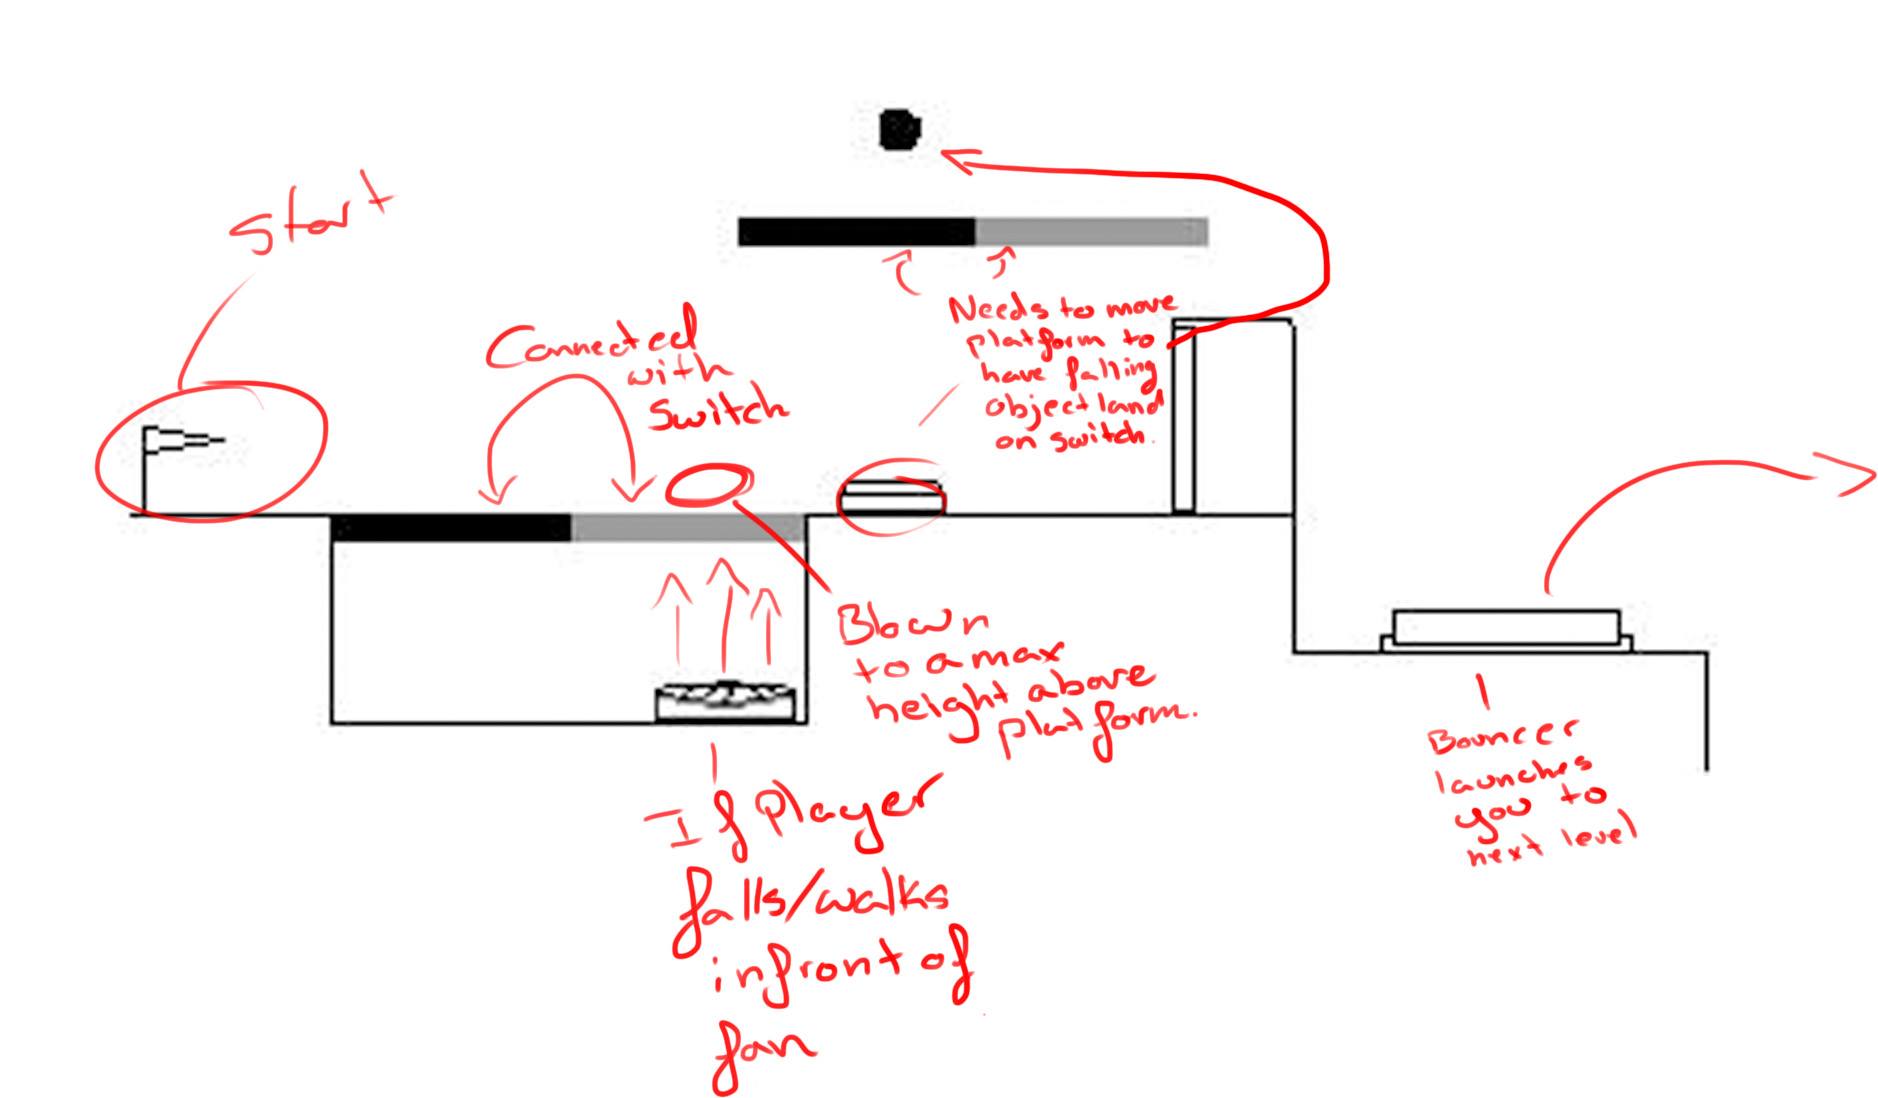 Start
Connected
with
Switch
Needs to move
platform to
have falling
object land
on switch.
Blown
to a max
height above
platform.
If Player
falls/walks
infront of
fan
Bouncer
launches
you to
next level